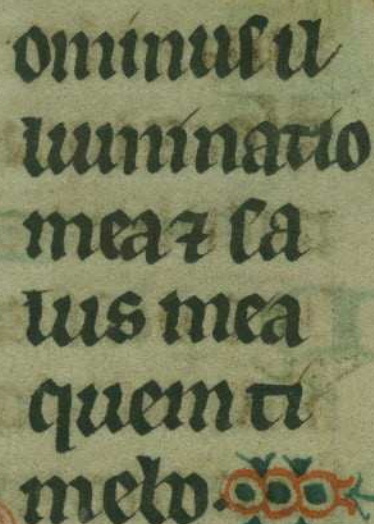 ominus il
luminatio
mea ⁊ sa
lus mea
quem ti
mebo.